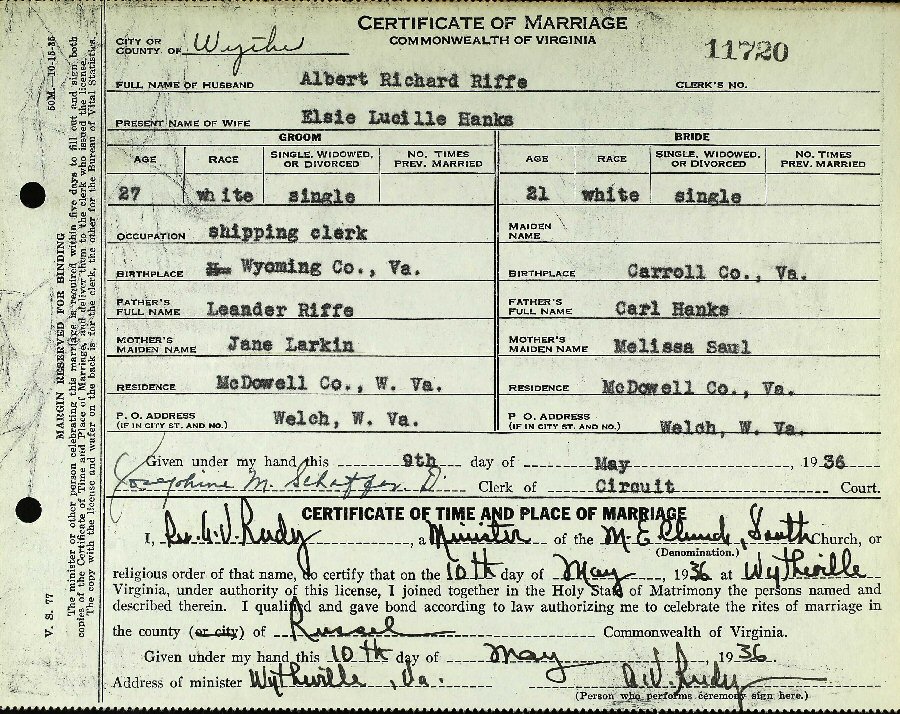 CERTIFICATE OF MARRIAGE
COMMONWEALTH OF VIRGINIA
CITY OR
COUNTY OF Wythe
11720
FULL NAME OF HUSBAND Albert Richard Riffe CLERK'S NO.
PRESENT NAME OF WIFE Elsie Lucille Hanks
GROOM BRIDE
AGE RACE SINGLE, WIDOWED, OR DIVORCED NO. TIMES PREV. MARRIED AGE RACE SINGLE, WIDOWED, OR DIVORCED NO. TIMES PREV. MARRIED
27 white single 21 white single
OCCUPATION shipping clerk MAIDEN NAME
BIRTHPLACE Wyoming Co., Va. BIRTHPLACE Carroll Co., Va.
FATHER'S FULL NAME Leander Riffe FATHER'S FULL NAME Carl Hanks
MOTHER'S MAIDEN NAME Jane Larkin MOTHER'S MAIDEN NAME Melissa Saul
RESIDENCE McDowell Co., W. Va. RESIDENCE McDowell Co., Va.
P. O. ADDRESS (IF IN CITY ST. AND NO.) Welch, W. Va. P O. ADDRESS (IF IN CITY ST. AND NO.) Welch, W. Va.
Given under my hand this 9th day of May, 1936
Josephine M. Schaffer D. Clerk of Circuit Court.
CERTIFICATE OF TIME AND PLACE OF MARRIAGE
I, Rev. A. V. Rudy, a Minister of the M. E. Church, South Church, or
(Denomination.)
religious order of that name, do certify that on the 10th day of May, 1936 at Wytheville
Virginia, under authority of this license, I joined together in the Holy State of Matrimony the persons named and
described therein. I qualified and gave bond according to law authorizing me to celebrate the rites of marriage in
the county (or city) of Russel Commonwealth of Virginia.
Given under my hand this 10th day of May, 1936.
Address of minister Wytheville, Va. A. V. Rudy
(Person who performs ceremony sign here.)
V. S. 77 MARGIN RESERVED FOR BINDING 50M—10-15-35
The minister or other person celebrating this marriage is required within five days to fill out and sign both
copies of the Certificate of Time and Place of Marriage, and deliver them to the clerk who issued the license.
The copy with the license and wafer on the back is for the clerk, the other for the Bureau of Vital Statistics.